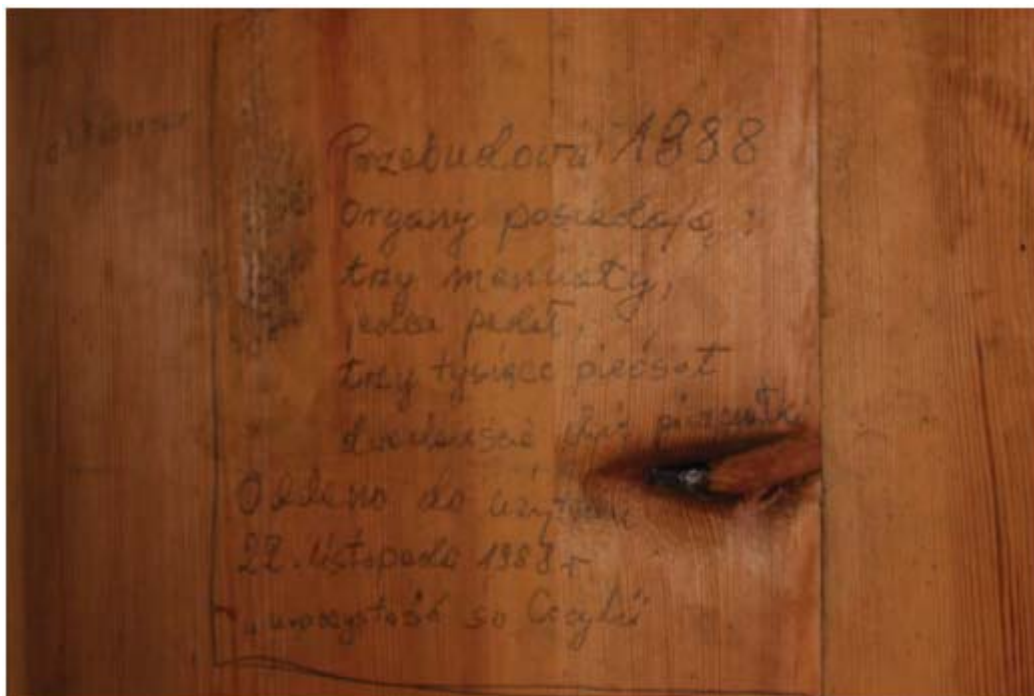 Przebudowa 1988
Organy posiadają:
trzy manuały,
jeden pedał,
trzy tysiące pięćset
dwadzieścia piszczałki
Oddano do użytku
22. listopada 198 r
uroczystość św Cecylii